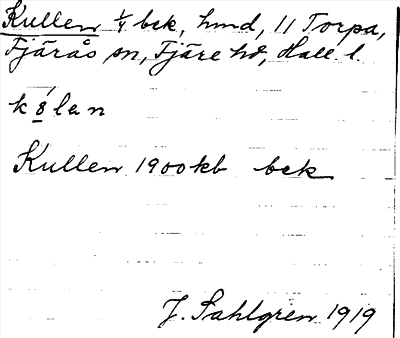 Kullen 1/4 bek, hmd, 11 Torpa,
Fjärås sn, Fjäre hd, Hall. l.
k8́lan
Kullen 1900kb bek
J. Sahlgren 1919